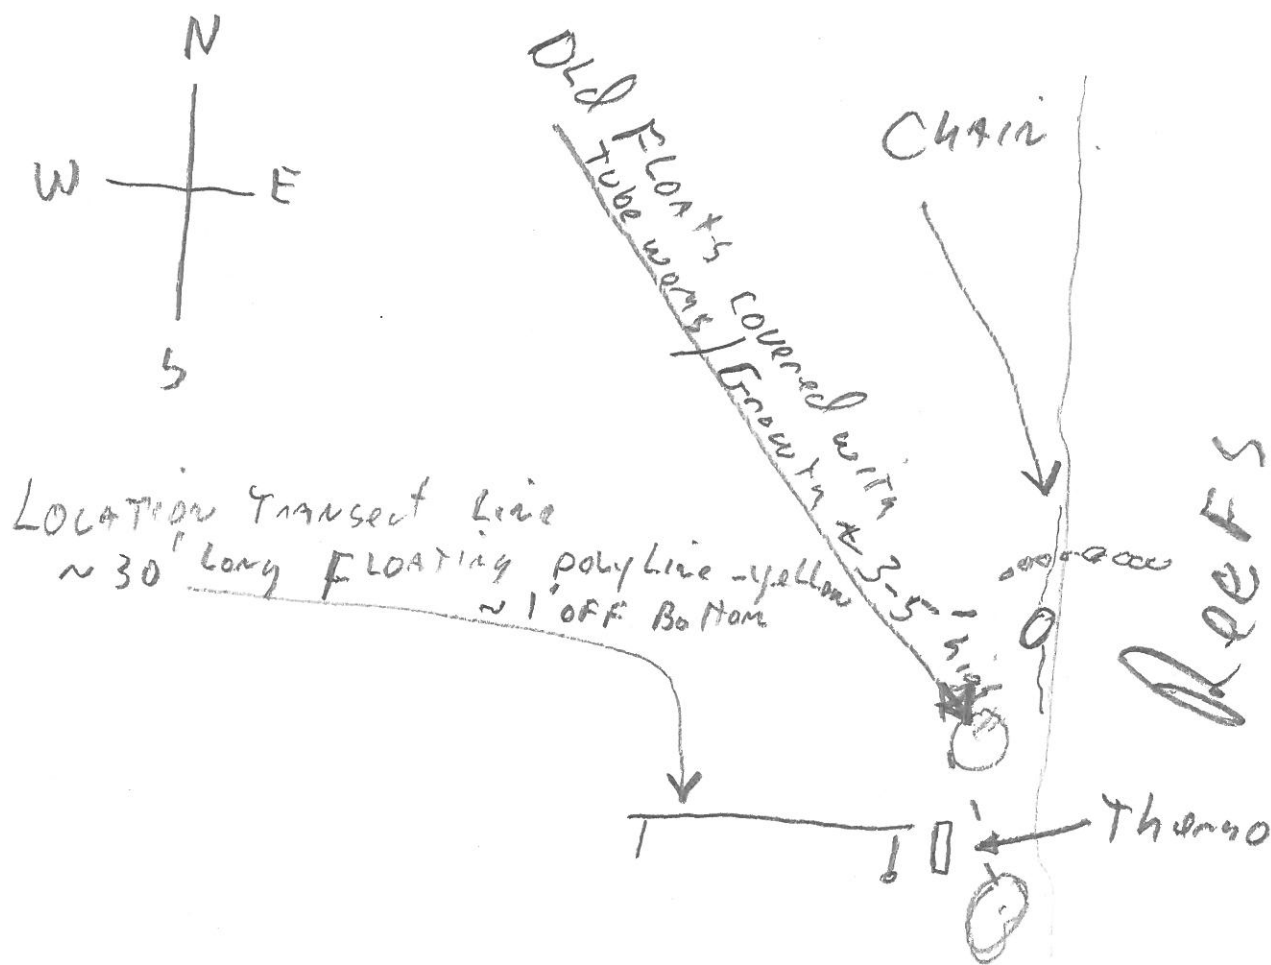 N
W E
S
Old Floats covered with
Tube worms / Growth ~ 3-5' high
CHAIN
LOCATION TRANSECT Line
~ 30' Long FLOATING polyline - yellow
~ 1' OFF Bottom
Reefs
Thermo